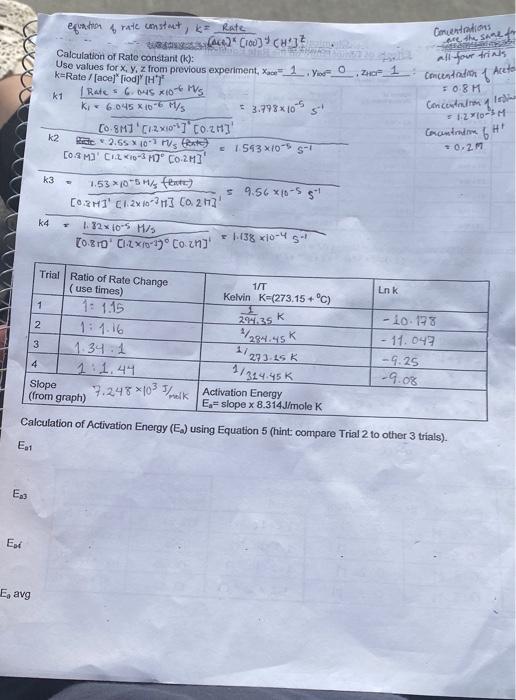 equation of rate constant, k = Rate
[ace]ˣ [iod]ʸ [H⁺]ᶻ
Concentrations
are the same for
all four trials
Calculation of Rate constant (k):
Use values for x, y, z from previous experiment, xace= 1 , yiod= 0 , zHCl= 1 :
k=Rate / [ace]ˣ [iod]ʸ [H⁺]ᶻ
Concentration of Aceto
= 0.8 M
Concentration of Iodine
= 1.2×10⁻³ M
Concentration of H⁺
= 0.2M
k1 Rate = 6.045 ×10⁻⁶ M/s
K₁ = 6.045 ×10⁻⁶ M/s = 3.778×10⁻⁵ s⁻¹
[0.8M]¹ [1.2×10⁻³]⁰ [0.2M]¹
k2 = 2.55 × 10⁻⁶ M/s (Rate) = 1.593×10⁻⁵ s⁻¹
[0.8 M]¹ [1.2×10⁻³ M]⁰ [0.2M]¹
k3 = 1.53×10⁻⁵ M/s (Rate) = 9.56 ×10⁻⁵ s⁻¹
[0.8M]¹ [1.2×10⁻³ M] [0.2M]¹
k4 = 1.82×10⁻⁵ M/s = 1.138 ×10⁻⁴ s⁻¹
[0.8M]¹ [1.2×10⁻³]⁰ [0.2M]¹
Trial Ratio of Rate Change ( use times) 1/T Kelvin K=(273.15 + ⁰C) Ln k
1 1: 1.15 1/294.35 K -10.178
2 1: 1.16 1/284.45 K -11.047
3 1.34 : 1 1/273.15 K -9.25
4 1:1.44 1/314.45 K -9.08
Slope (from graph) 7.248 ×10³ J/molk Activation Energy
Eₐ= slope x 8.314J/mole K
Calculation of Activation Energy (Eₐ) using Equation 5 (hint: compare Trial 2 to other 3 trials).
Ea1
Ea3
Ea4
Eₐ avg